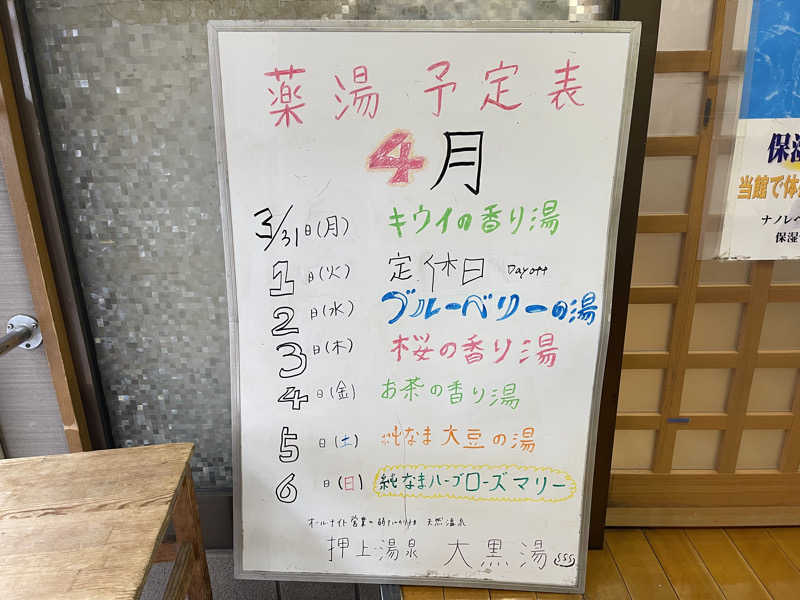 薬湯 予定表
4月
3/31日(月) キウイの香り湯
1日(火) 定休日 Day off
2日(水) ブルーベリーの湯
3日(木) 桜の香り湯
4日(金) お茶の香り湯
5日(土) 純なま大豆の湯
6日(日) 純なまハーブローズマリー
オールナイト営業の 天然温泉
押上温泉 大黒湯
保湿
当館で体
ナノルベ
保湿